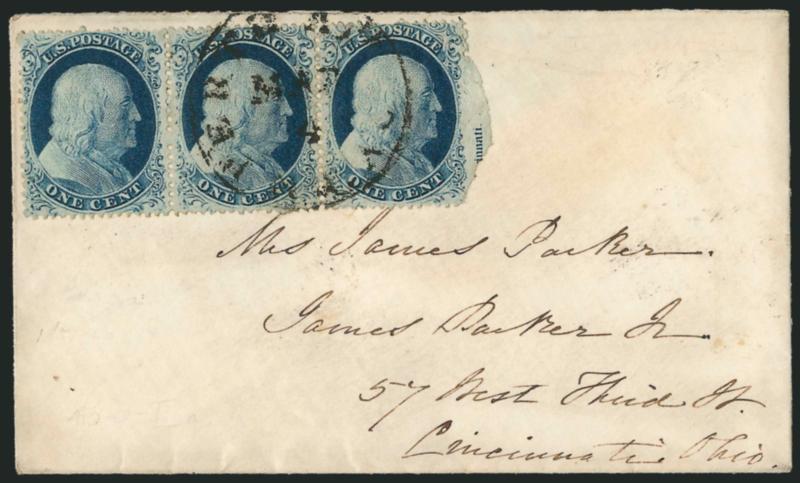 U.S. POSTAGE U.S. POSTAGE U.S. POSTAGE
ONE CENT ONE CENT ONE CENT
MAR
4
nnati.
Mrs James Parker.
James Parker Jr.
57 West Third St.
Cincinnati Ohio.